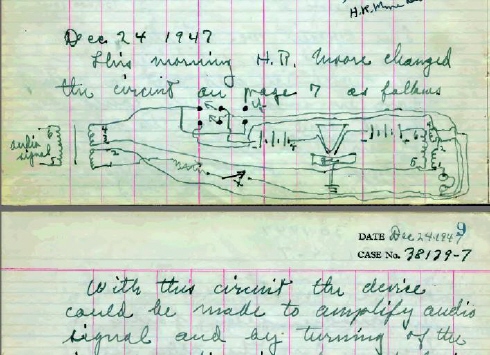 H.R. Moore
Dec 24 1947
This morning H.R. Moore changed
the circuit on page 7 as follows
audio
signal
DATE Dec 24 1947
9
CASE No. 38139-7
With this circuit the device
could be made to amplify audio
signal and by turning of the